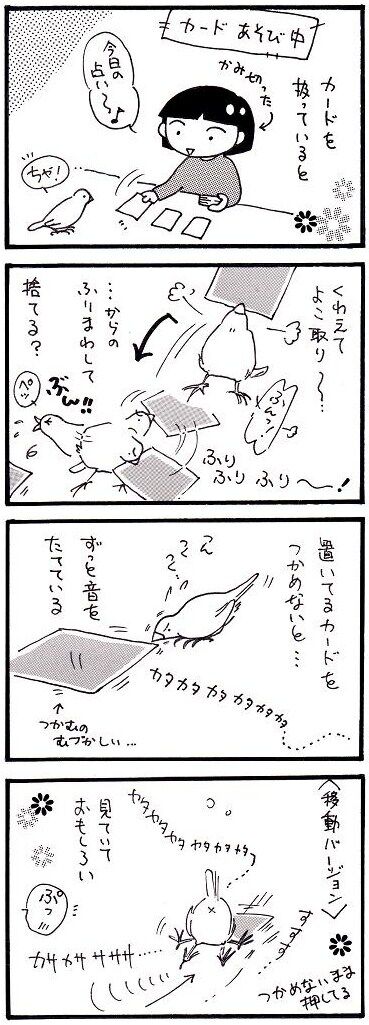 カード あそび中
カードを
扱っていると
かみ切った
今日の
占い〜♪
ちゃ!
くわえて
よこ取り〜…
ふんっ!
…からの
ふりまわして
捨てる?
ぶん!!
ペッ
ふり
ふり
ふり
ふり〜!
置いてるカードを
つかめないと…
ん
くくく…
ずっと音を
たてている
カタカタカタカタカタカタ
つかむの
むづかしい…
<移動バージョン>
カタカタカタカタカタカタ
見ていて
おもしろい
ぷっ
カサカササササ……
すすす
つかめないまま
押してる